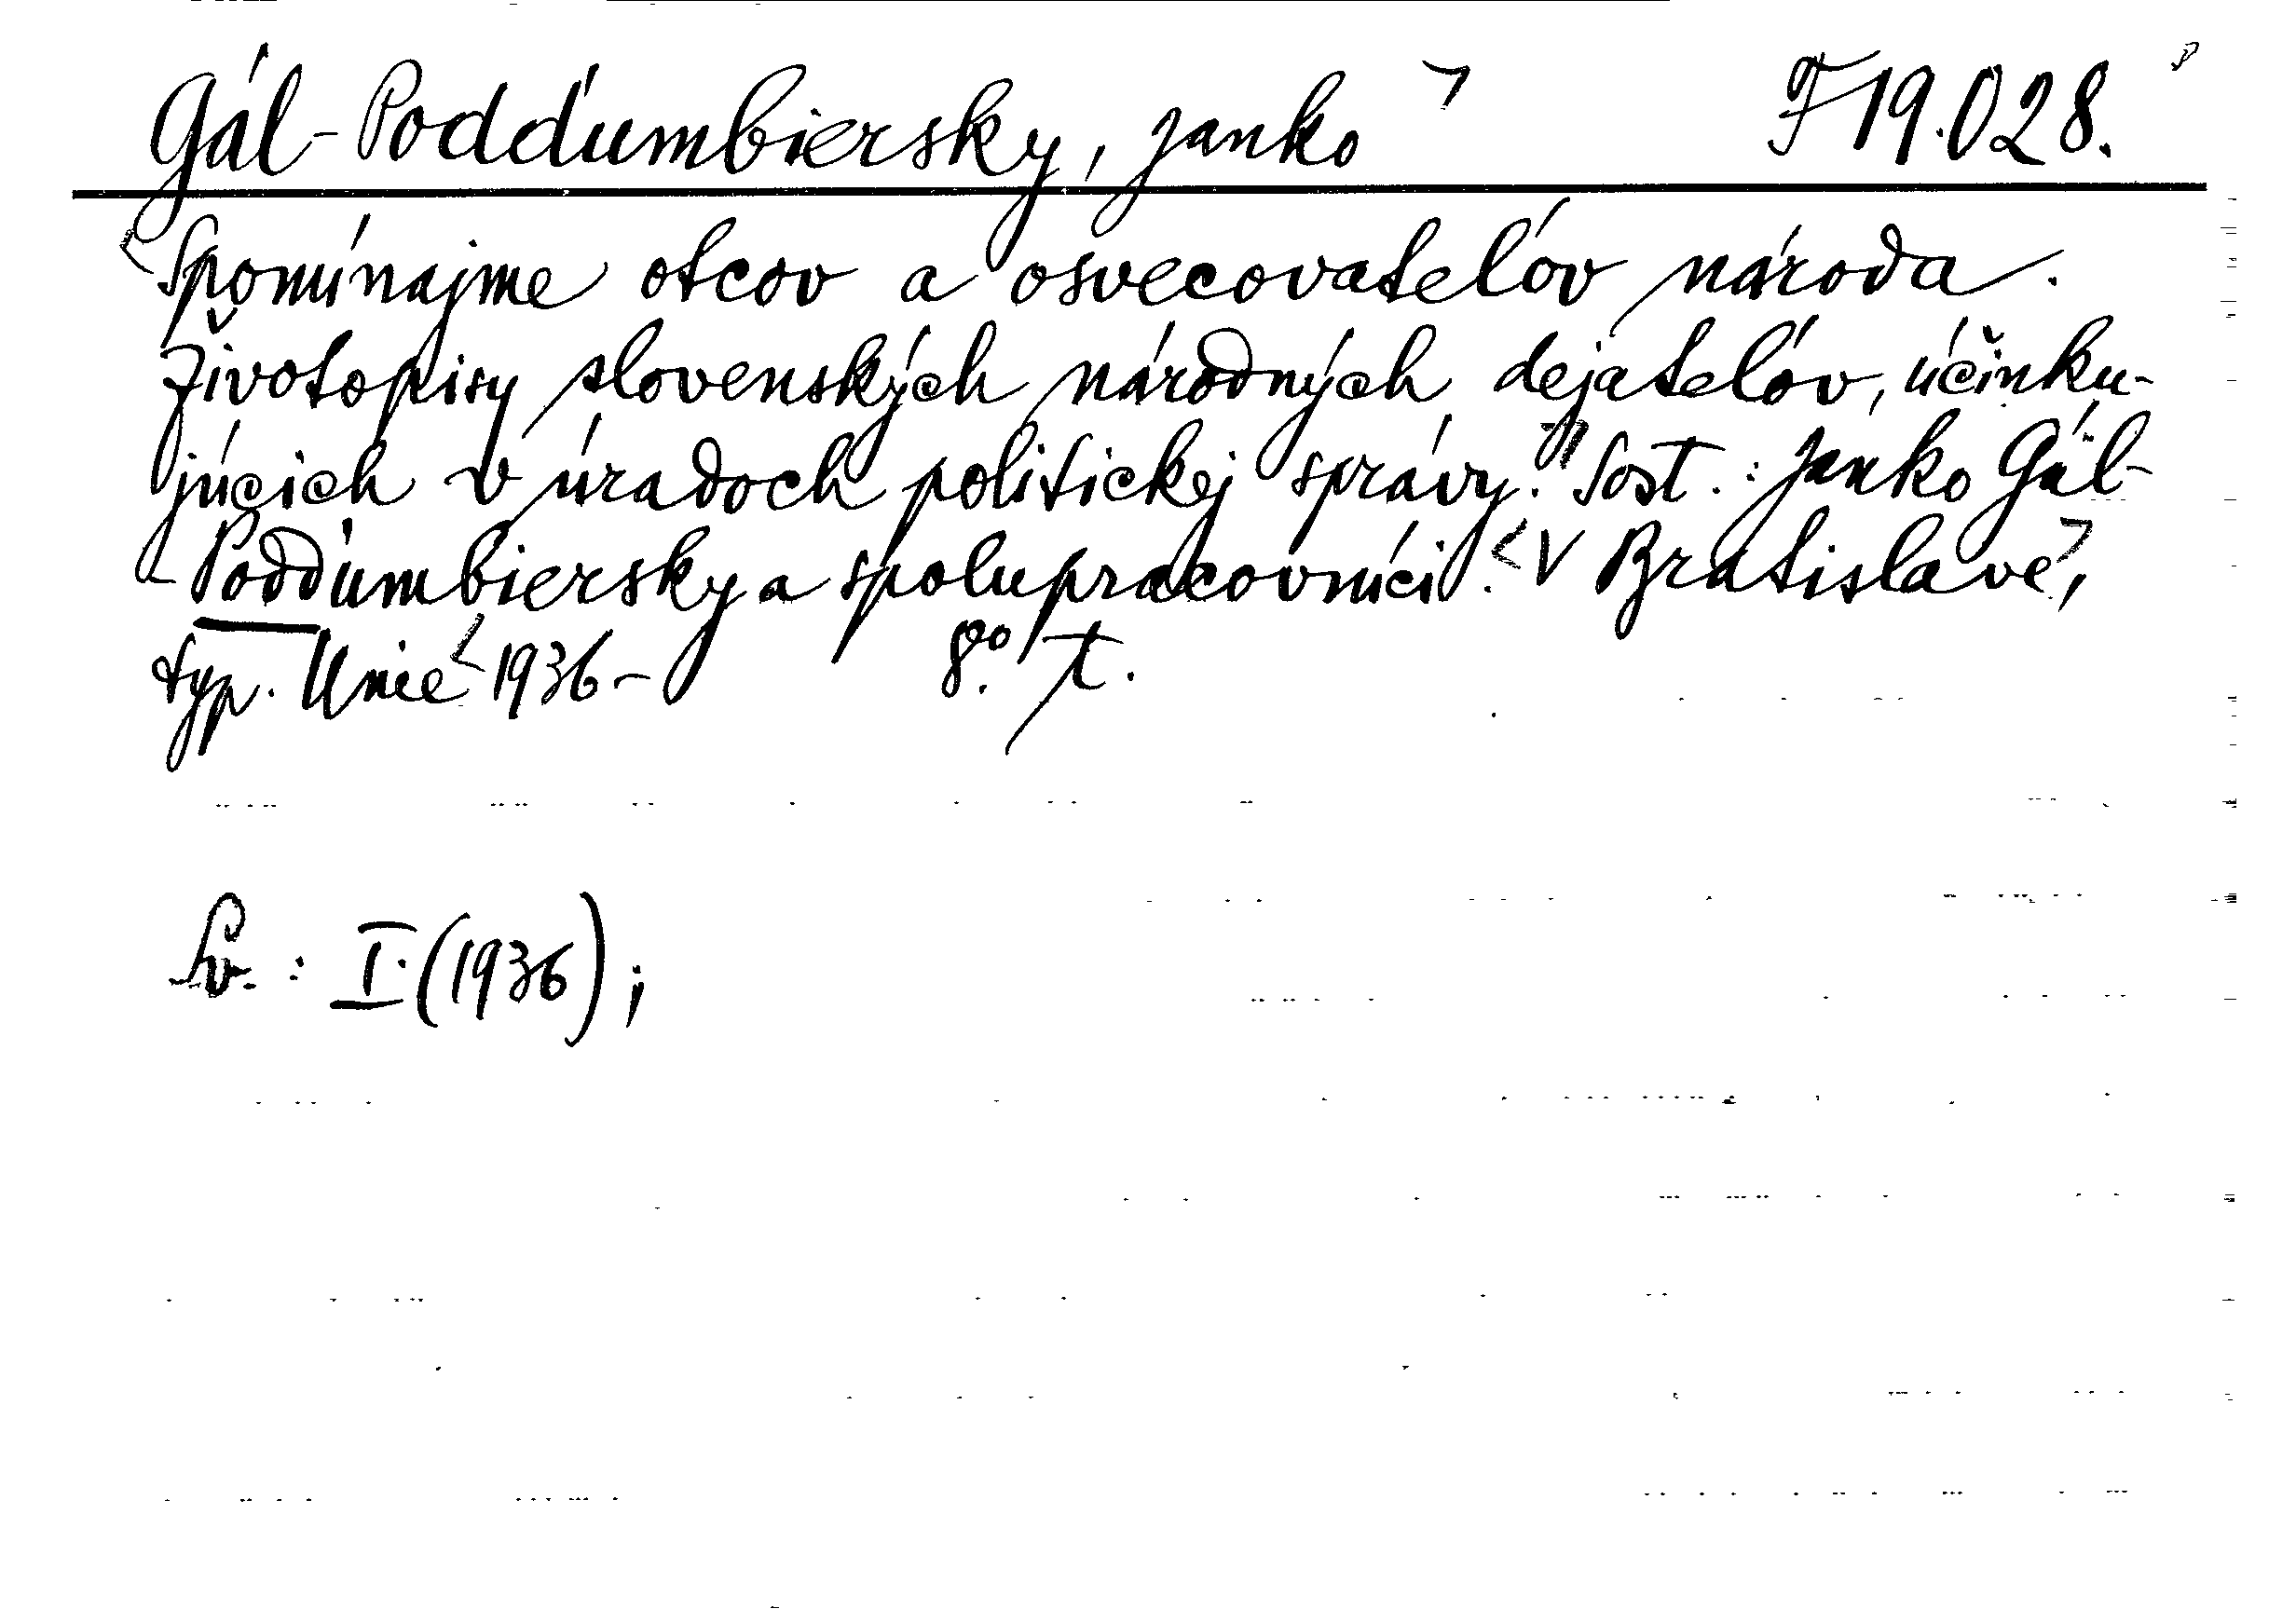 Gál-Poddumbiersky, Janko F19.028.
Spomínajme otcov a osvecovateľov národa.
Životopisy slovenských národných dejateľov, účinku-
júcich v úradoch politickej správy. Sost.: Janko Gál-
Poddumbiersky a spolupracovníci. V Bratislave,
typ. Unie 1936- 8°. T.
Sv. : I. (1936);